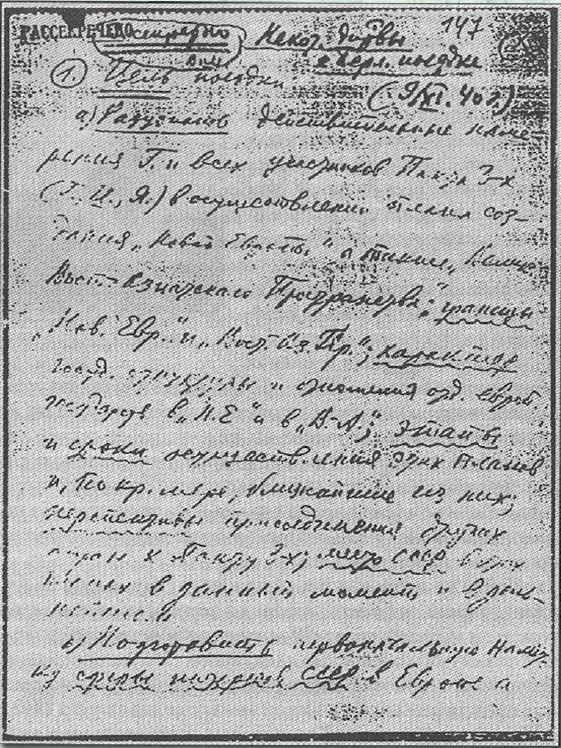 РАССЕКРЕЧЕНО Секретно Некот. дир-вы 147
к Берл. поездке
(9/XI. 40 г.)
1. Цель поездки
а) Разузнать действительные наме-
рения Г. и всех участников Пакта 3-х
(Г., И., Я.) в осуществлении плана соз-
дания „Новой Европы", а также „Велик.
Вост.-Азиатского Пространства"; границы
„Нов. Евр." и „Вост-Аз. Пр."; характер
госуд. структуры и отношения отд. европ.
государств в „Н.Е." и в „В-А"; этапы
и сроки осуществления этих планов
и, по кр. мере, ближайшие из них;
перспективы присоединения других
стран к Пакту 3-х; место СССР в этих
планах в данный момент и в даль-
нейшем
б) Подготовить первоначальную намет-
ку сферы интересов СССР в Европе а